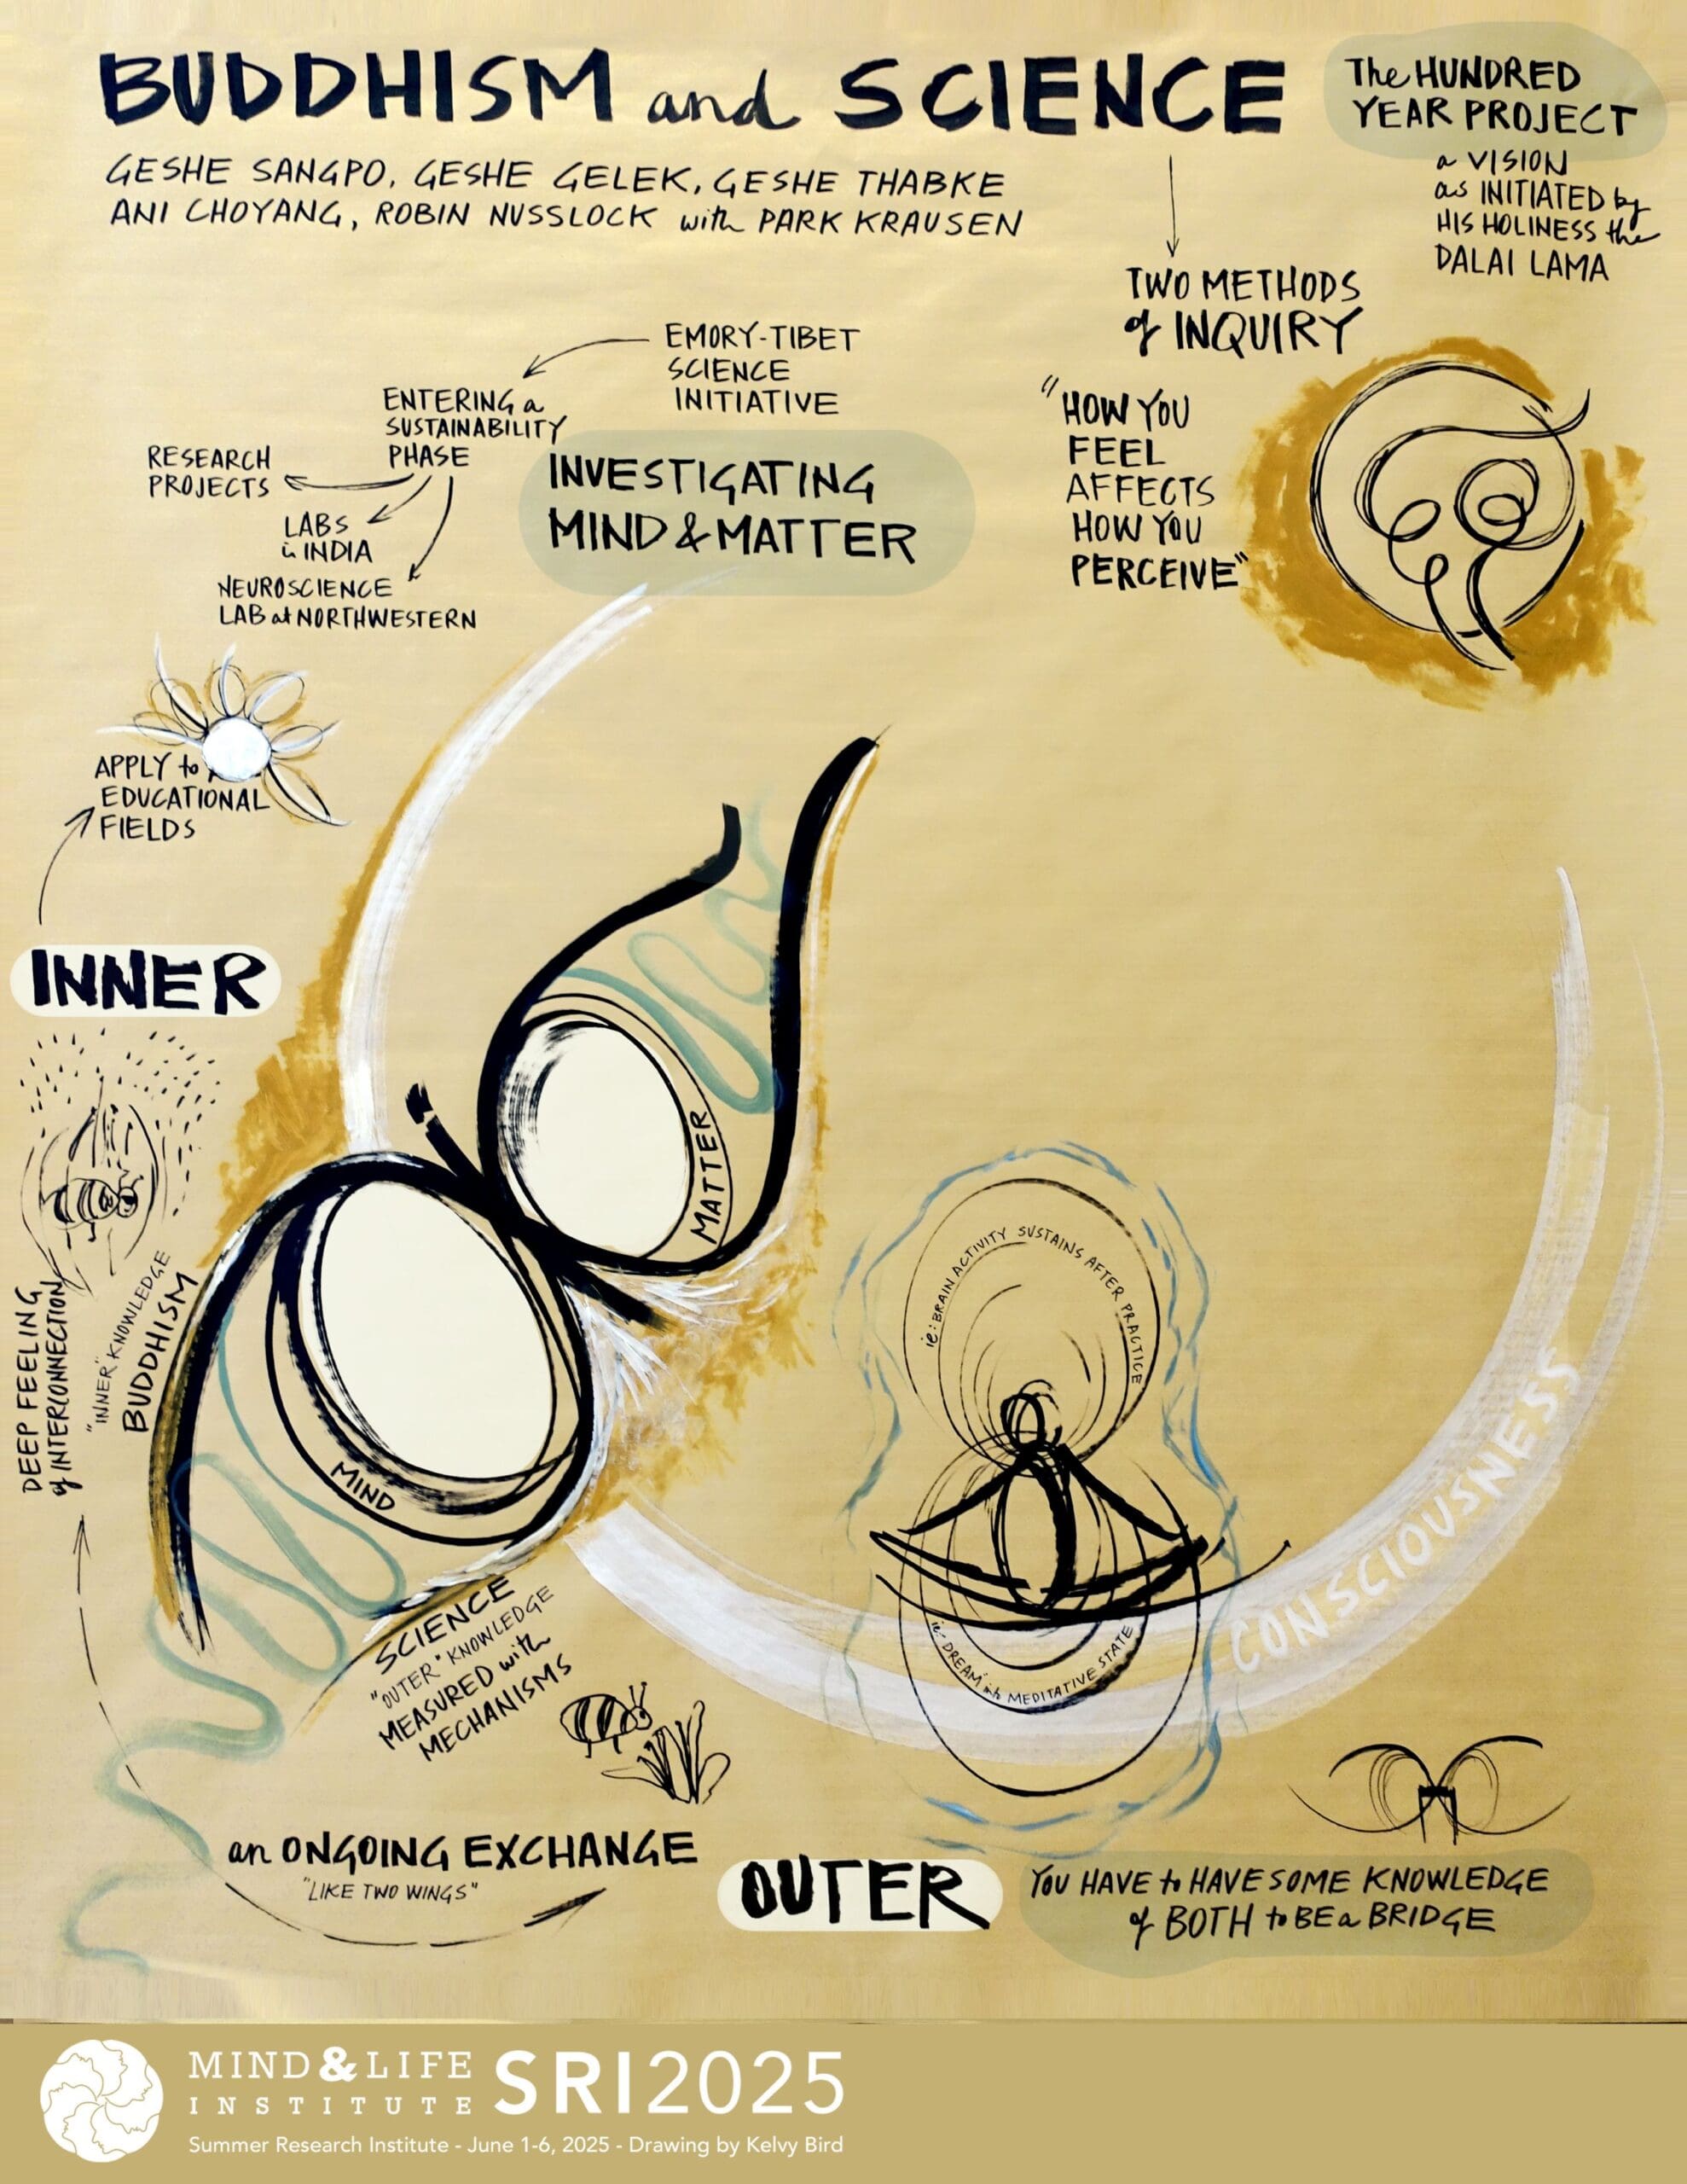 BUDDHISM and SCIENCE
GESHE SANGPO, GESHE GELEK, GESHE THABKE
ANI CHOYANG, ROBIN NUSSLOCK with PARK KRAUSEN
The HUNDRED
YEAR PROJECT
a VISION
as INITIATED by
HIS HOLINESS the
DALAI LAMA
TWO METHODS
of INQUIRY
"HOW YOU
FEEL
AFFECTS
HOW YOU
PERCEIVE"
EMORY-TIBET
SCIENCE
INITIATIVE
ENTERING a
SUSTAINABILITY
PHASE
RESEARCH
PROJECTS
LABS
in INDIA
NEUROSCIENCE
LAB at NORTHWESTERN
INVESTIGATING
MIND & MATTER
APPLY to
EDUCATIONAL
FIELDS
INNER
DEEP FEELING
of INTERCONNECTION
"INNER" KNOWLEDGE
BUDDHISM
MATTER
MIND
SCIENCE
"OUTER" KNOWLEDGE
MEASURED with
MECHANISMS
ie: BRAIN ACTIVITY SUSTAINS AFTER PRACTICE
ie: DREAM into MEDITATIVE STATE
CONSCIOUSNESS
an ONGOING EXCHANGE
"LIKE TWO WINGS"
OUTER
YOU HAVE to HAVE SOME KNOWLEDGE
of BOTH to BE a BRIDGE
MIND & LIFE
INSTITUTE
SRI2025
Summer Research Institute - June 1-6, 2025 - Drawing by Kelvy Bird